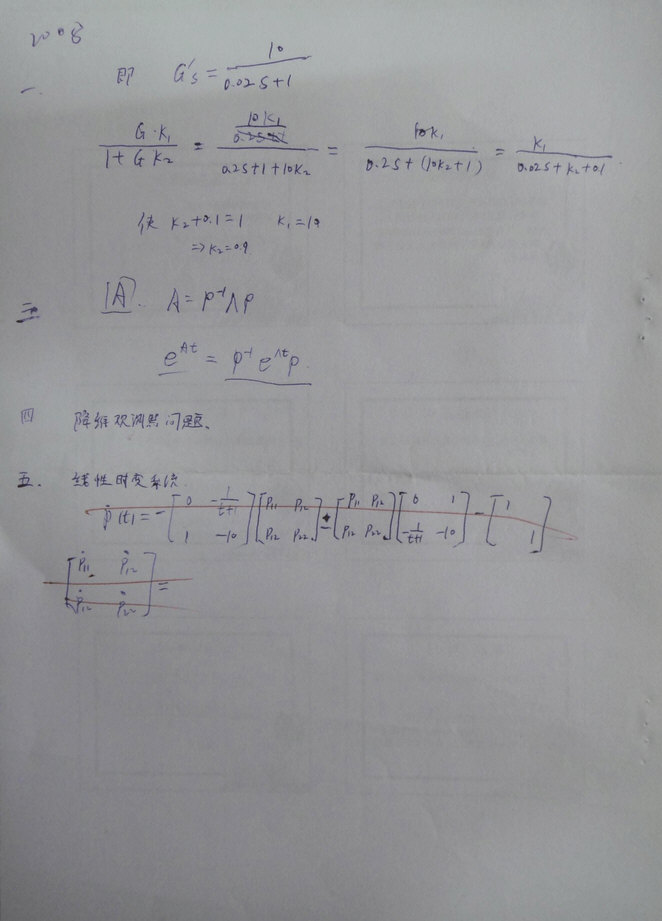 2008
一.
即 G's = 10 / (0.02S+1)
G·K₁ / (1+GK₂) = 10K₁ / (0.2S+1+10K₂) = 10K₁ / (0.2S+(10K₂+1)) = K₁ / (0.02S+K₂+0.1)
使 K₂+0.1=1 K₁=10
⇒K₂=0.9
三 |A|. A = P⁻¹ΛP
e^{At} = P⁻¹e^{Λt}P.
四 降维观测器问题、
五. 线性时变系统
Ṗ(t) = -[0 -1/(t+1); 1 -10][P₁₁ P₁₂; P₁₂ P₂₂] - [P₁₁ P₁₂; P₁₂ P₂₂][0 1; -1/(t+1) -10] - [1; 1]
[Ṗ₁₁ Ṗ₁₂; Ṗ₁₂ Ṗ₂₂] =